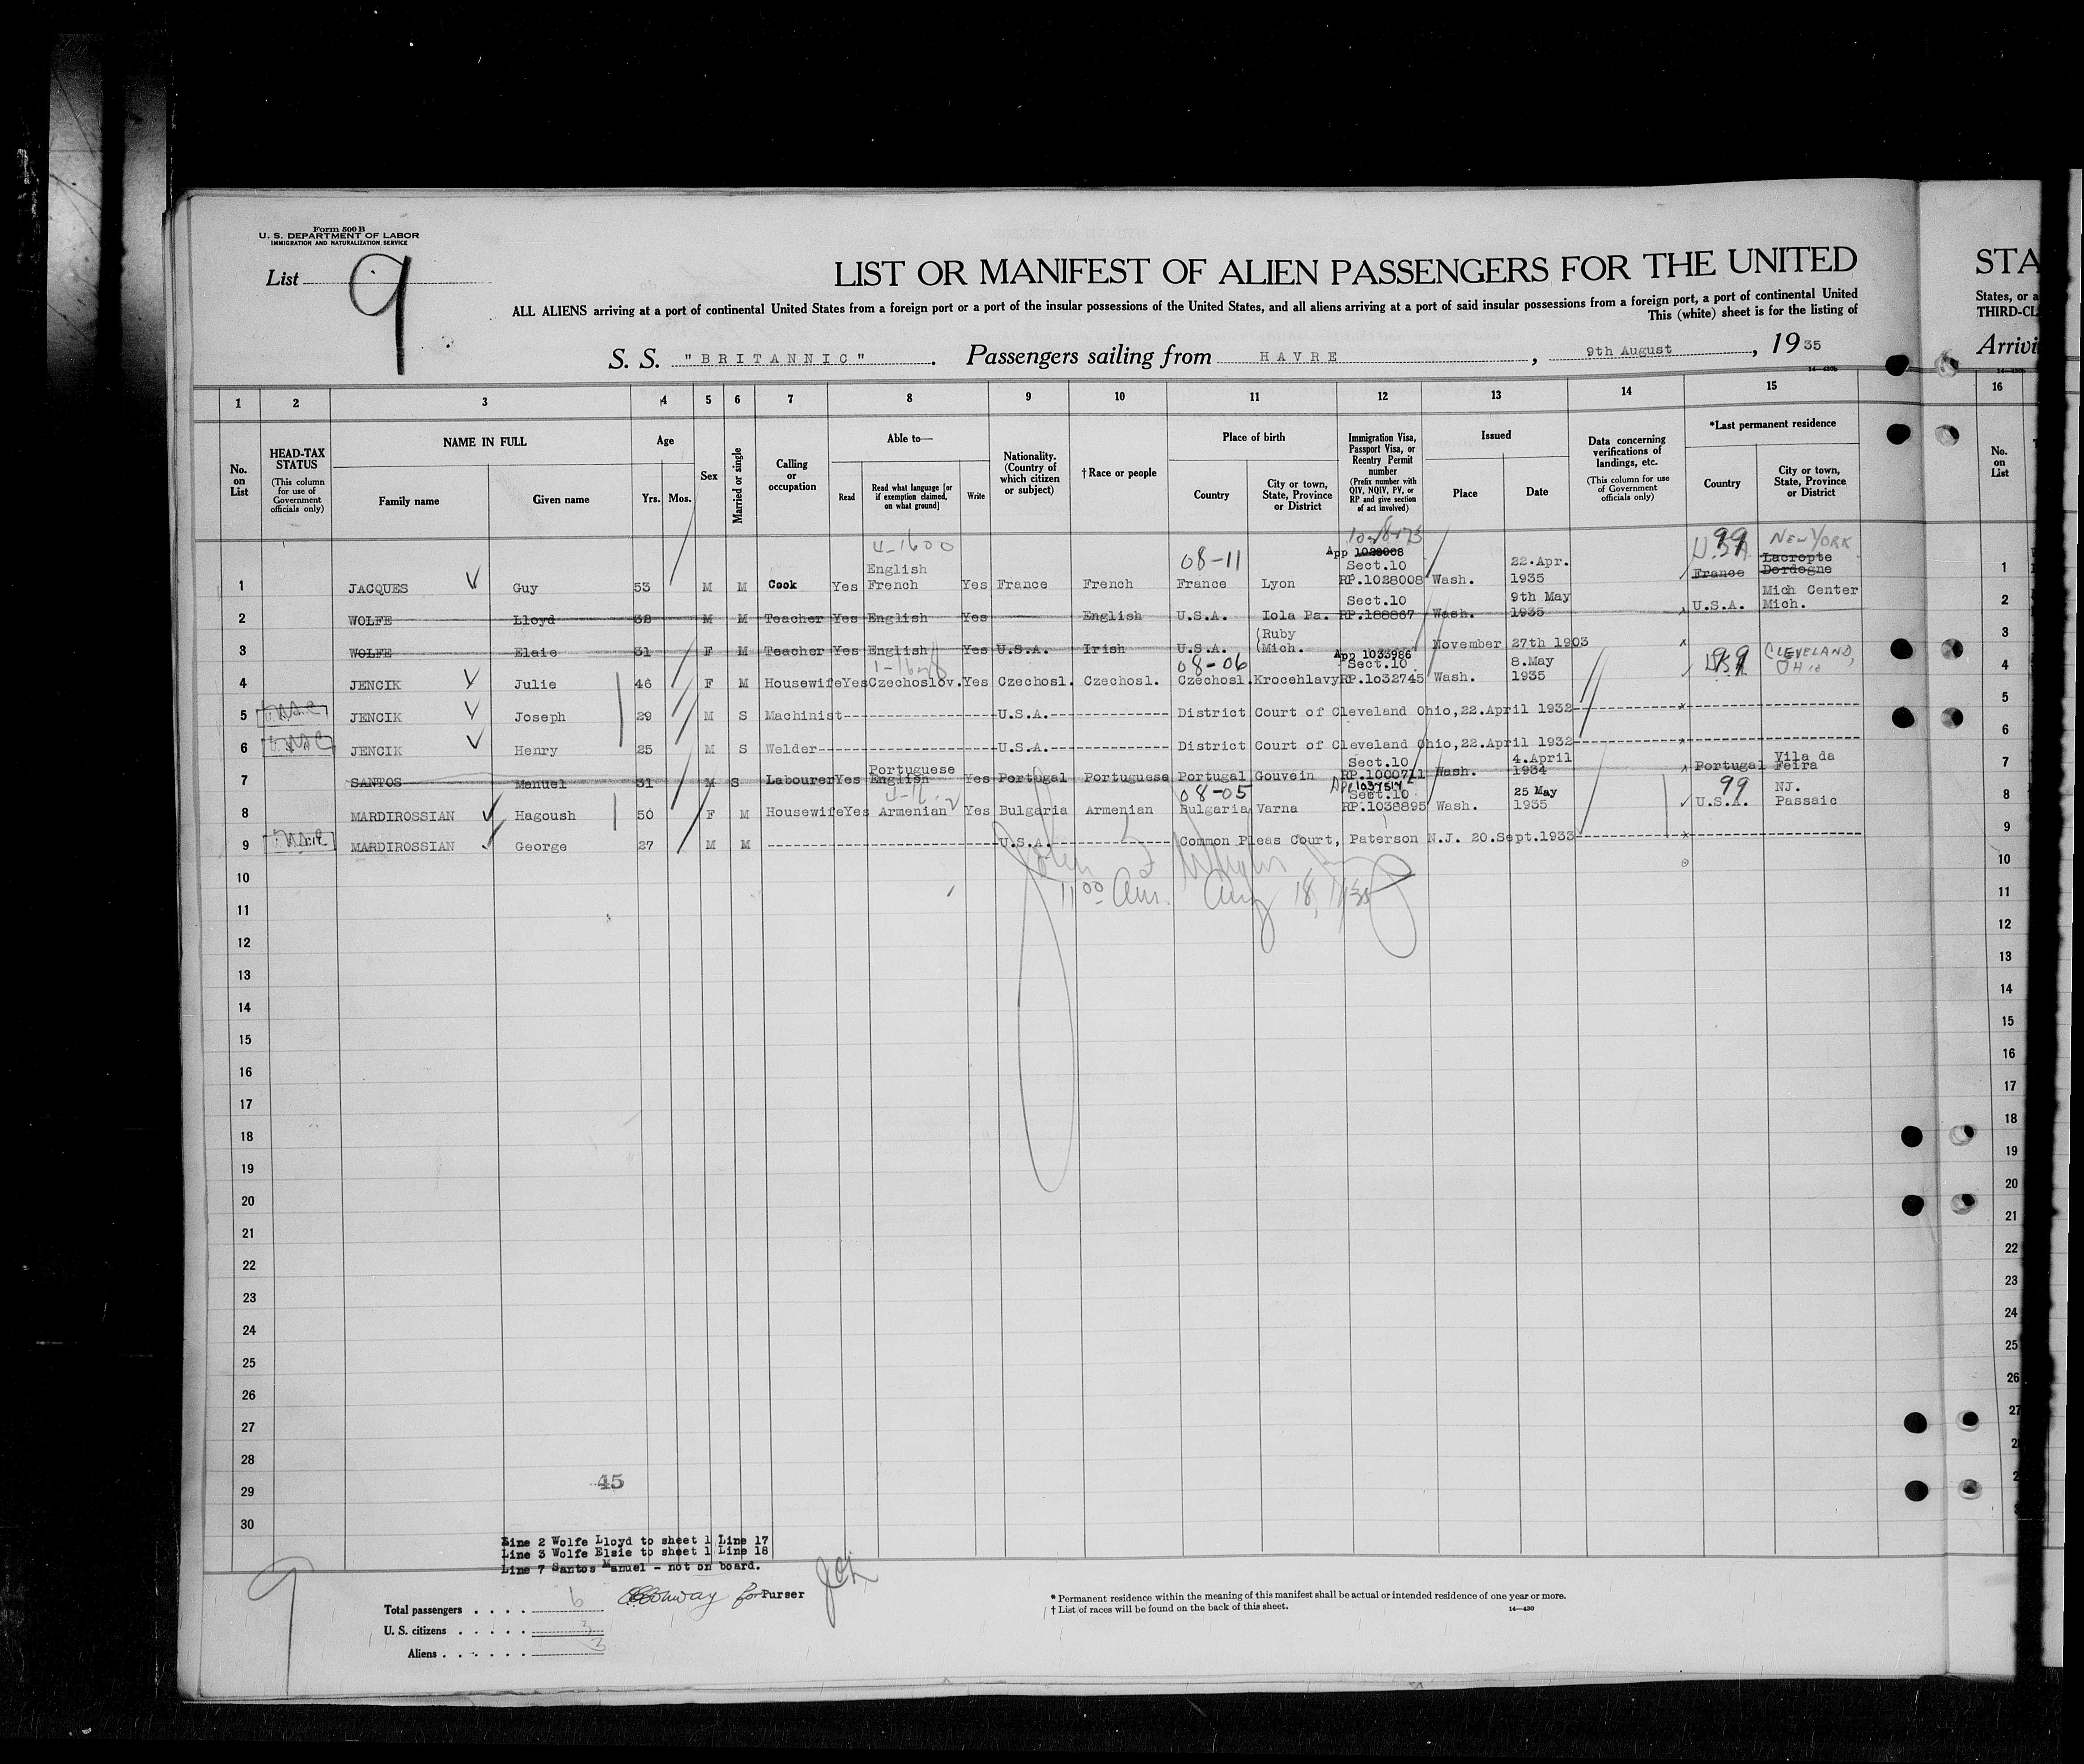 Form 500 B
U. S. DEPARTMENT OF LABOR
IMMIGRATION AND NATURALIZATION SERVICE
List 9
LIST OR MANIFEST OF ALIEN PASSENGERS FOR THE UNITED
STA
ALL ALIENS arriving at a port of continental United States from a foreign port or a port of the insular possessions of the United States, and all aliens arriving at a port of said insular possessions from a foreign port, a port of continental United
States, or a
This (white) sheet is for the listing of
THIRD-CL
S. S. "BRITANNIC". Passengers sailing from HAVRE, 9th August, 1935
Arrivi
1 2 3 4 5 6 7 8 9 10 11 12 13 14 15 16
No. on List
HEAD-TAX STATUS
(This column for use of Government officials only)
NAME IN FULL
Family name
Given name
Age
Yrs.
Mos.
Sex
Married or single
Calling or occupation
Able to—
Read
Read what language [or if exemption claimed, on what ground]
Write
Nationality. (Country of which citizen or subject)
†Race or people
Place of birth
Country
City or town, State, Province or District
Immigration Visa, Passport Visa, or Reentry Permit number
(Prefix number with QIV, NQIV, PV, or RP and give section of act involved)
Issued
Place
Date
Data concerning verifications of landings, etc.
(This column for use of Government officials only)
*Last permanent residence
Country
City or town, State, Province or District
No. on List
4-1600 08-11 App 1028008 99 NEW YORK
English Sect.10 22.Apr. U.S.A. Lacropte
1 JACQUES Guy 53 M M Cook Yes French Yes France French France Lyon RP.1028008 Wash. 1935 France Dordogne
Sect.10 9th May Mich Center
2 WOLFE Lloyd 38 M M Teacher Yes English Yes English U.S.A. Iola Pa. RP.188867 Wash. 1935 U.S.A. Mich.
(Ruby
3 WOLFE Elaie 31 F M Teacher Yes English Yes U.S.A. Irish U.S.A. (Mich. November 27th 1903
08-06 App 1033986 Sect.10 8.May 99 CLEVELAND, OHIO
4 JENCIK Julie 46 F M Housewife Yes Czechoslov. Yes Czechosl. Czechosl. Czechosl. Krocehlavy RP.1o32745 Wash. 1935 USA
5 JENCIK Joseph 29 M S Machinist U.S.A. District Court of Cleveland Ohio,22.April 1932
6 JENCIK Henry 25 M S Welder U.S.A. District Court of Cleveland Ohio,22.April 1932
Portuguese Sect.10 4.April Vila da
7 SANTOS Manuel 31 M S Labourer Yes English Yes Portugal Portuguese Portugal Gouvein RP.1000711 Wash. 1934 Portugal Feira
08-05 App 1037514 Sect.10 25 May 99 NJ.
8 MARDIROSSIAN Hagoush 50 F M Housewife Yes Armenian Yes Bulgaria Armenian Bulgaria Varna RP.1038895 Wash. 1935 U.S.A. Passaic
9 MARDIROSSIAN George 27 M M U.S.A. Common Pleas Court, Paterson N.J. 20.Sept.1933
11 00 Am. Aug 18, 1935
10
11
12
13
14
15
16
17
18
19
20
21
22
23
24
25
26
27
28
29
30
45
Line 2 Wolfe Lloyd to sheet 1 Line 17
Line 3 Wolfe Elsie to sheet 1 Line 18
Line 7 Santos Manuel - not on board.
for Purser
9
Total passengers 6
U. S. citizens 3
Aliens 3
* Permanent residence within the meaning of this manifest shall be actual or intended residence of one year or more.
† List of races will be found on the back of this sheet.
14—430